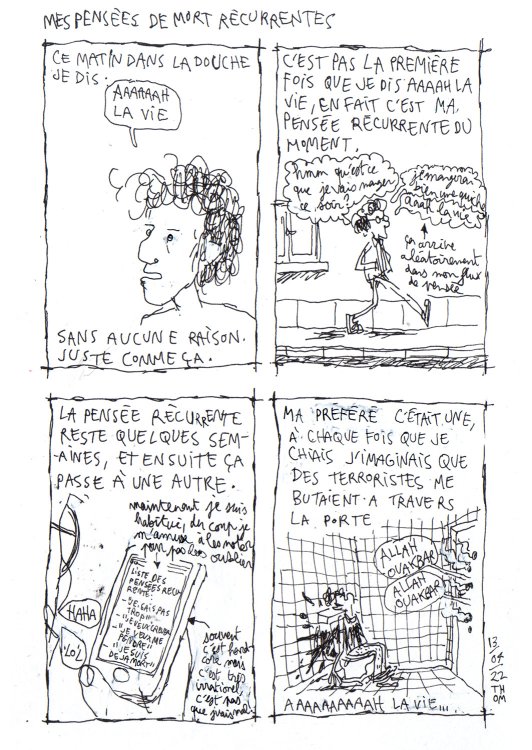 MES PENSÉES DE MORT RÉCURRENTES
CE MATIN DANS LA DOUCHE
JE DIS :
AAAAAAH
LA VIE
SANS AUCUNE RAISON.
JUSTE COMME ÇA.
C'EST PAS LA PREMIÈRE
FOIS QUE JE DIS AAAAH LA
VIE, EN FAIT C'EST MA
PENSÉE RÉCURRENTE DU
MOMENT.
hmm qu'est ce
que je vais manger
ce soir?
je mangerai
bien une quiche
aaah la vie
ça arrive
aléatoirement
dans mon flux
de pensée
LA PENSÉE RÉCURRENTE
RESTE QUELQUES SEM-
AINES, ET ENSUITE ÇA
PASSE À UNE AUTRE.
maintenant je suis
habitué, du coup je
m'amuse à les noter
pour pas les oublier
LISTE DES
PENSÉES RÉCU
RRENTE:
-"JE SAIS PAS
TROP"
"JE VEUX
-"JE VEUX ME
PENDRE"
"JE SUIS
DEJA MORT"
HAHA
"LOL"
souvent
c'est hard
core mais
c'est trop
irrationel
c'est pas
que
MA PRÉFÉRÉ C'ÉTAIT UNE,
À CHAQUE FOIS QUE JE
CHIAIS J'IMAGINAIS QUE
DES TERRORISTES ME
BUTAIENT A TRAVERS
LA PORTE
ALLAH
OUAKBAR
ALLAH
OUAKBAR
AAAAAAAAAAH LA VIE...
13
04
22
TH
OM